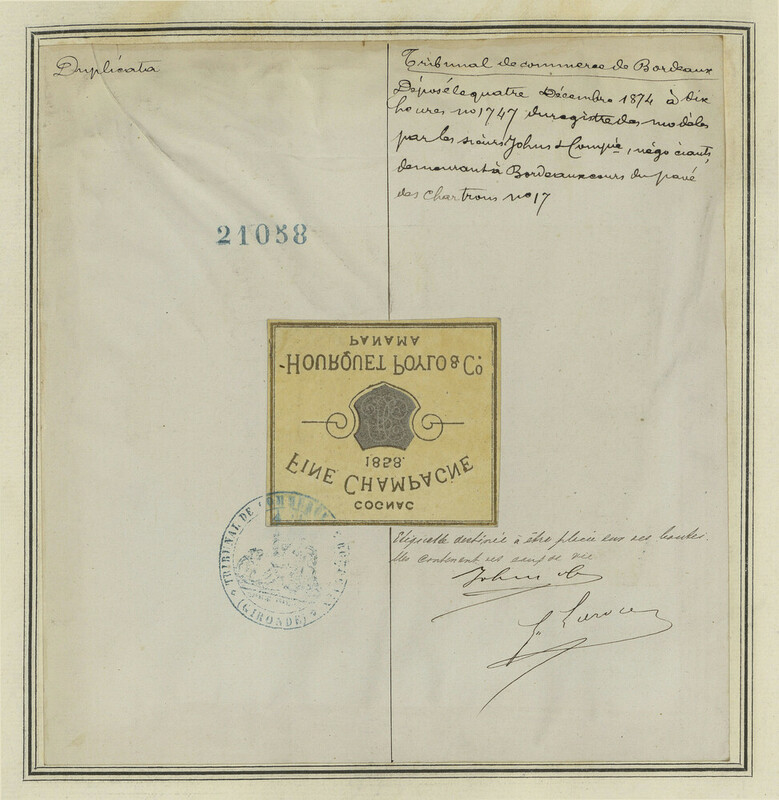 Duplicata
Tribunal de commerce de Bordeaux
Déposé le quatre Décembre 1874 à dix
heures no 1747 du registre des modèles
par les sieurs Johns & Compie, négociants,
demeurant à Bordeaux cours du pavé
des Chartrons no 17
21058
COGNAC
FINE CHAMPAGNE
1858.
HOURQUET POYLO & Co.
PANAMA
TRIBUNAL DE COMMERCE
(GIRONDE)
Etiquette destinée à être placée sur
contenant eaux de vie
Johns